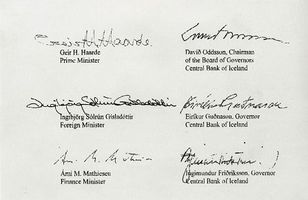 Geir H. Haarde
Prime Minister
Davíð Oddsson, Chairman
of the Board of Governors
Central Bank of Iceland
Ingibjörg Sólrún Gísladóttir
Foreign Minister
Eiríkur Guðnason, Governor
Central Bank of Iceland
Árni M. Mathiesen
Finance Minister
Ingimundur Friðriksson, Governor
Central Bank of Iceland